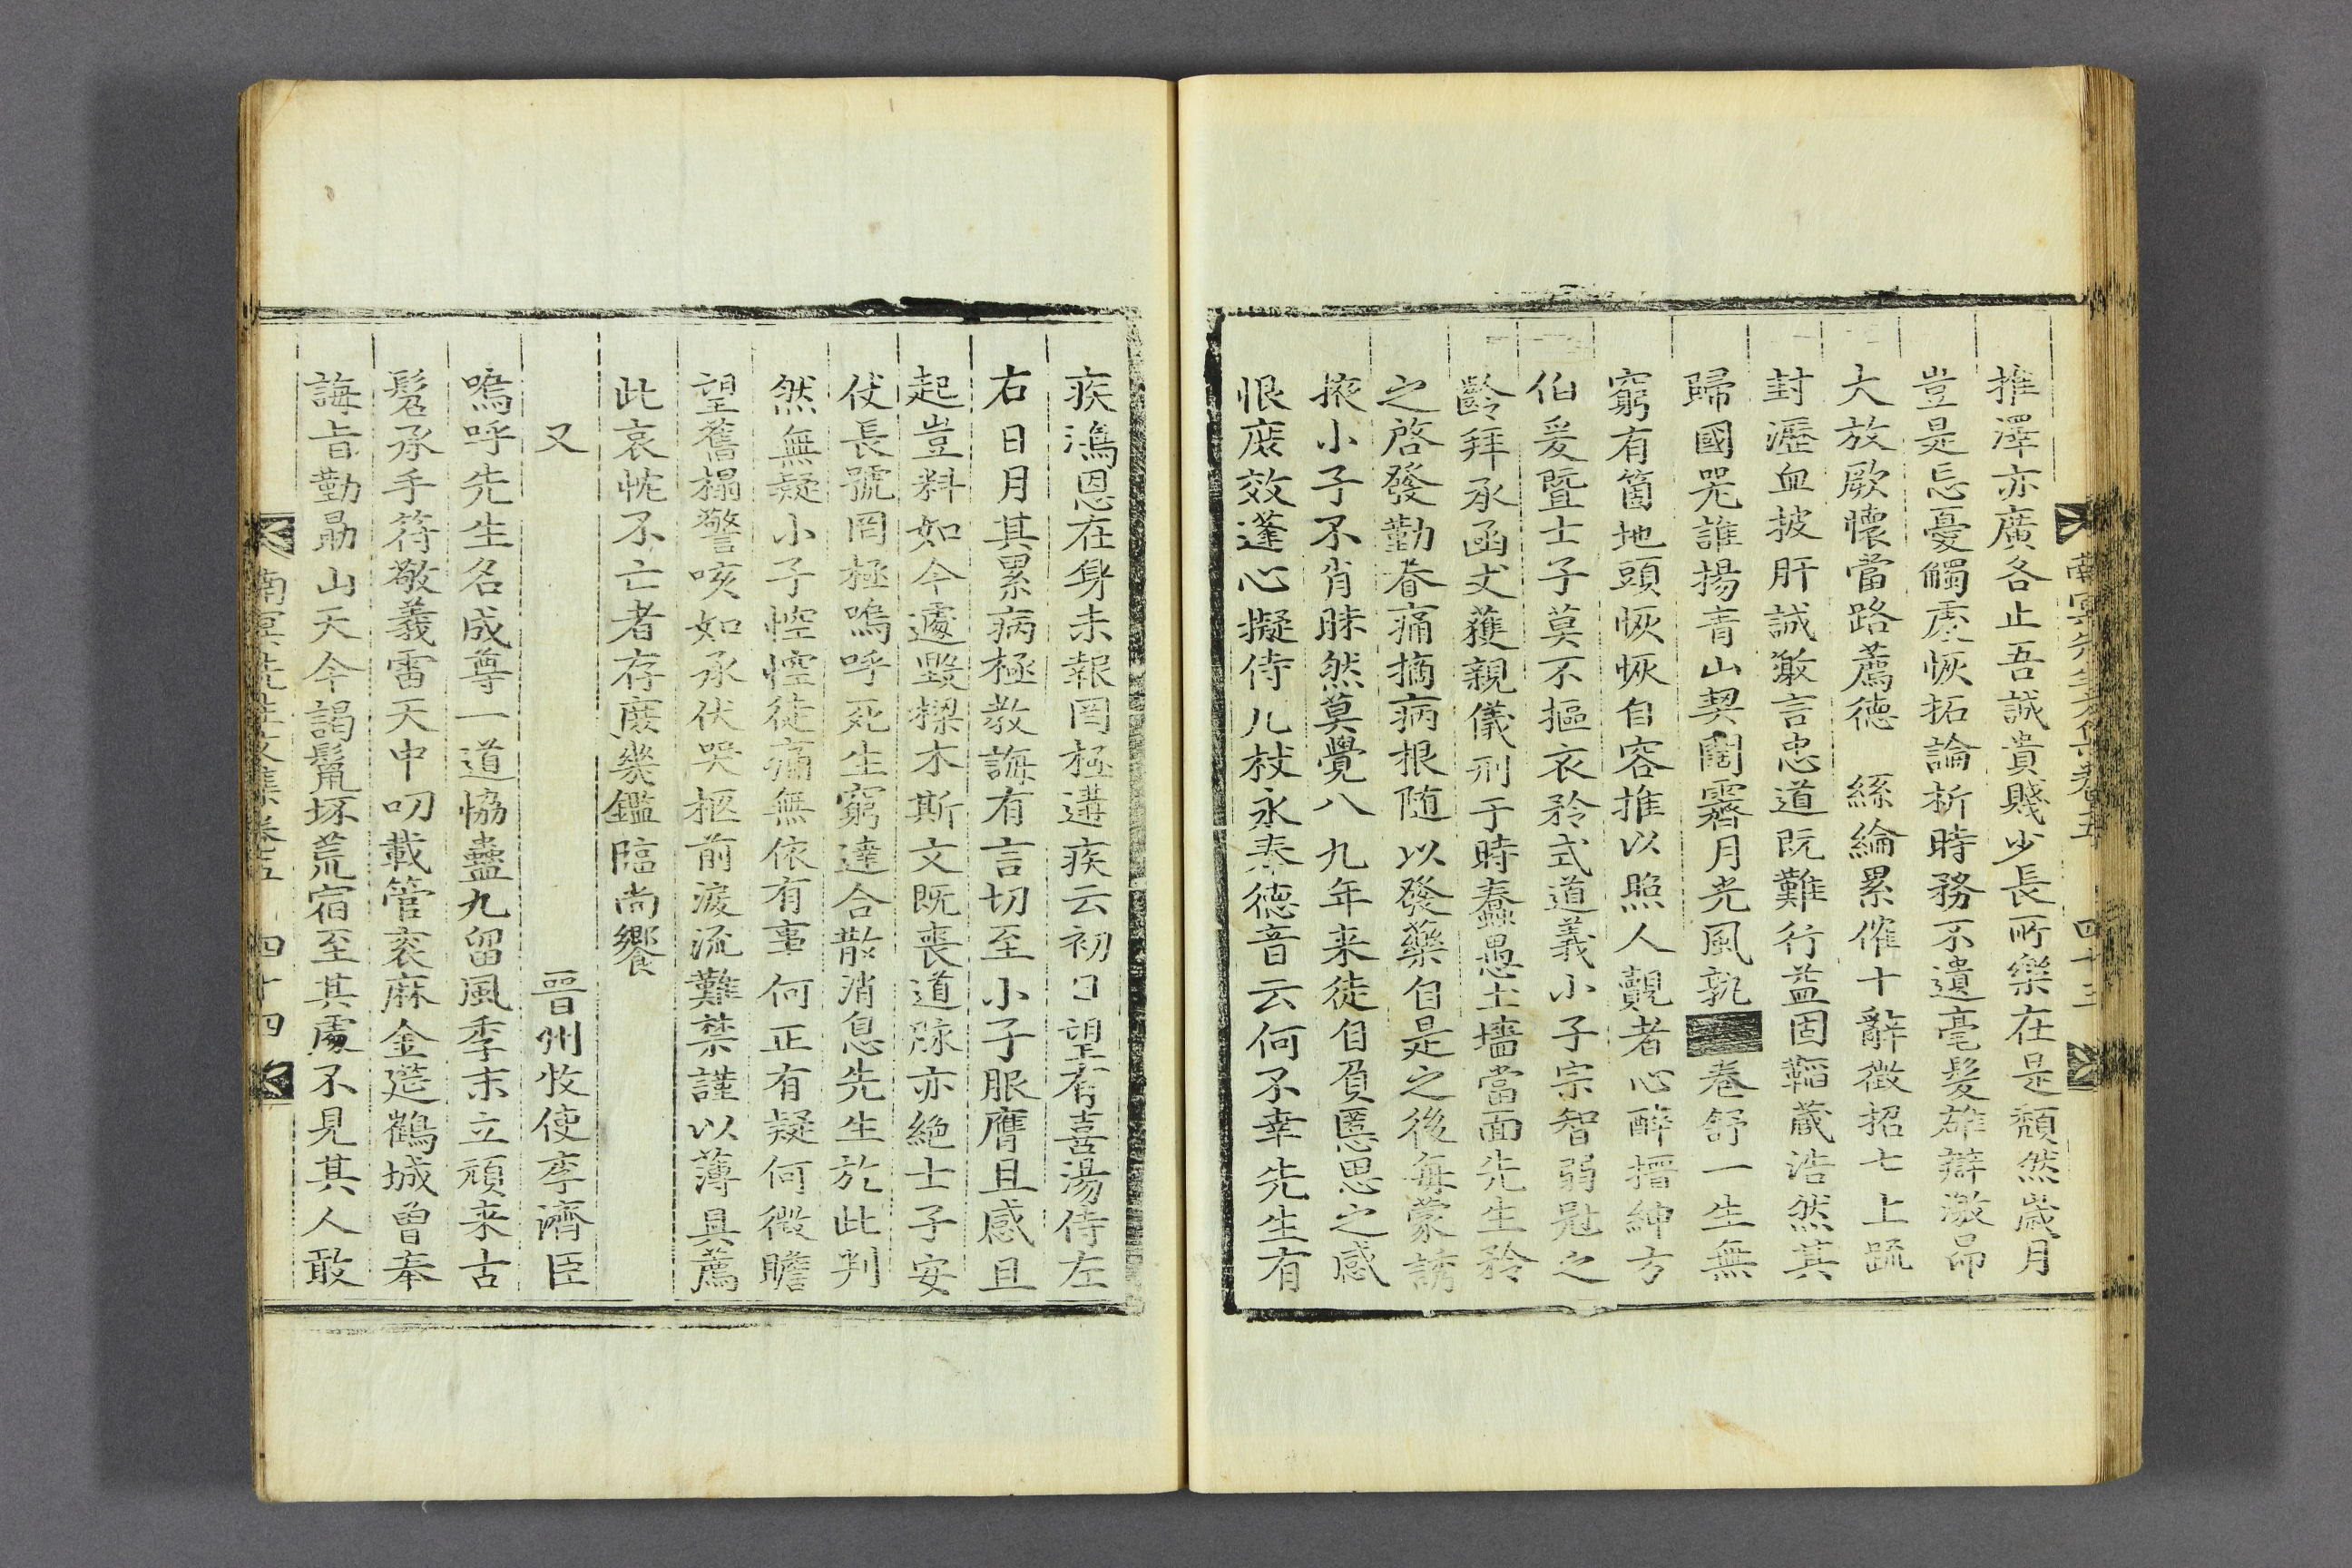 推澤亦廣各止吾誠貴賤少長所樂在是頹然歲月
豈是忘憂觸處恢拓論析時務不遺毫髮雄辯激昻
大放厥懷當路薦德 絲綸累傕十辭徵招七上疏
封瀝血披肝誠敢言忠道既難行益固韜蔵浩然其
歸國哭誰揚青山契闊霽月光風孰卷舒一生無
窮有箇地頭恢恢自容推以照人覿者心醉搢紳方
伯爰曁士子莫不摳衣矜式道義小子宗智弱冠之
齡拜承函丈獲親儀刑于時蠢愚土墻當面先生矜
之啓發勤眷痛摘病根随以發藥自是之後每蒙誘
掖小子不肖昧然莫覺八九年来徒自負慝思之感
恨庶效蓬心擬侍几杖永奉德音云何不幸先生有
南冥先生文集卷五 四十三
疾鴻恩在身未報罔極遘疾云初日望有喜湯侍左
右日月其累病極敎誨有言切至小子服膺且感且
起豈料如今遽毀樑木斯文既喪道脉亦絶士子安
仗長號罔極嗚呼死生窮達合散消息先生於此判
然無疑小子悾悾徒痛無依有事何正有疑何徵瞻
望舊榻警咳如承伏哭柩前淚流難禁謹以薄具薦
此哀忱不亡者存庶幾鑑臨尚饗
又 晋州牧使李濟臣
嗚呼先生名成尊一道協蠱九留風季末立頑来古
髫承手符敬義雷天中叨載管衮麻金莚鶴城曾奉
誨旨勤勗山天今謁鬣坏荒宿至其處不見其人敢
南冥先生文集卷五 四十四